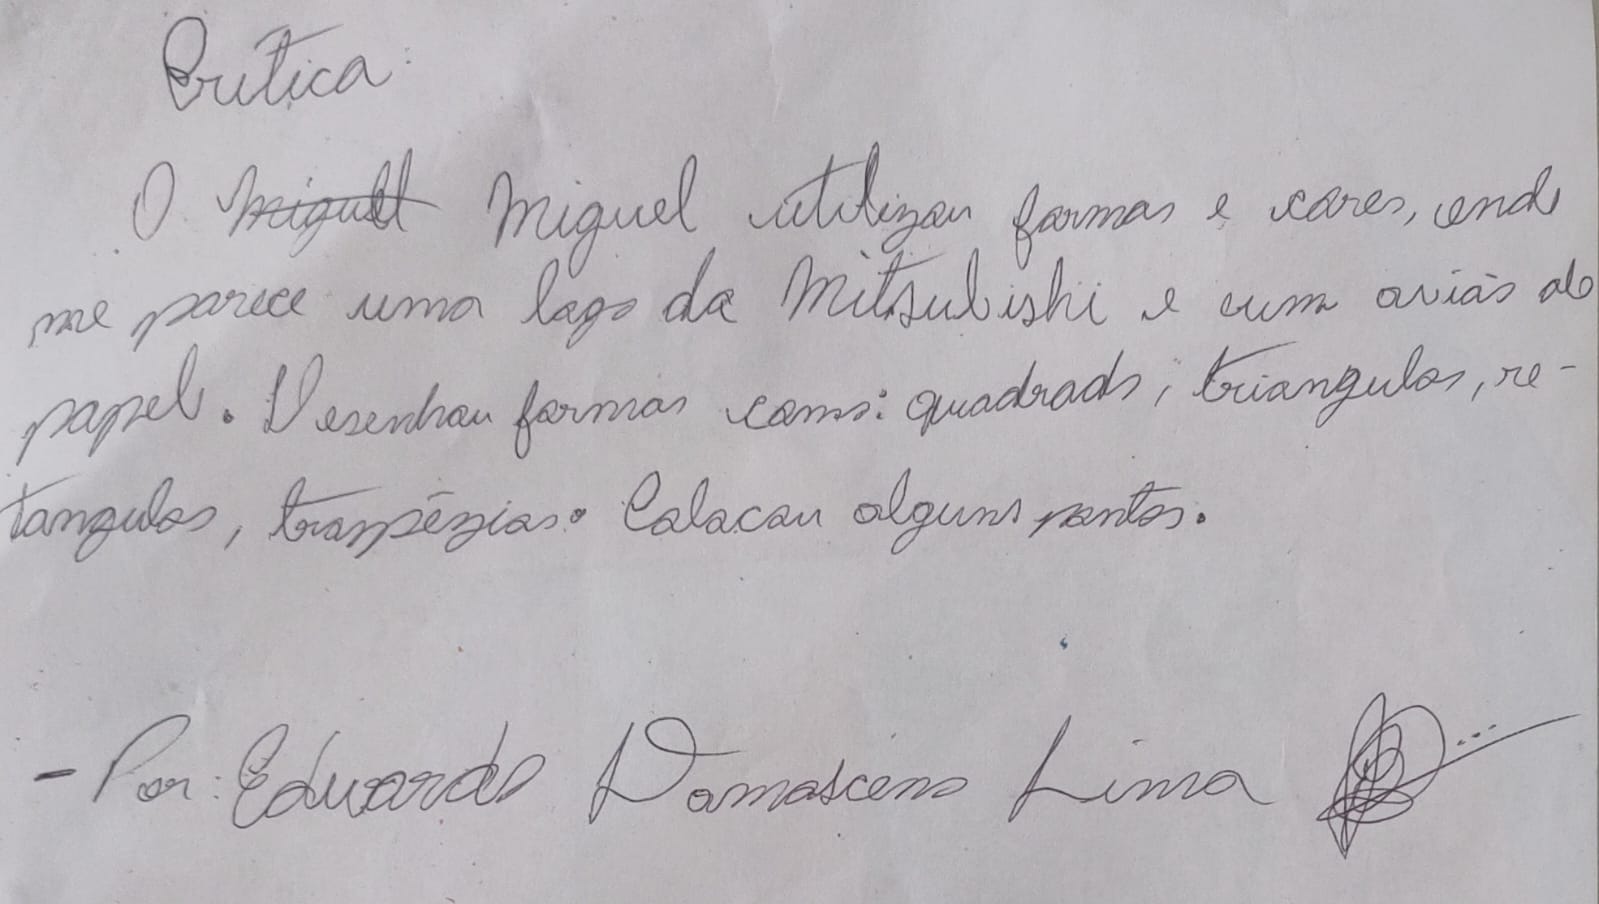 Crítica:
O Miguel Miguel utilizou formas e cores, onde
me parece uma logo da Mitsubishi e um avião de
papel. Desenhou formas como: quadrado, triangulos, re-
tangulos, trapézios. Colocou alguns pontos.
- Por: Eduardo Damasceno Lima